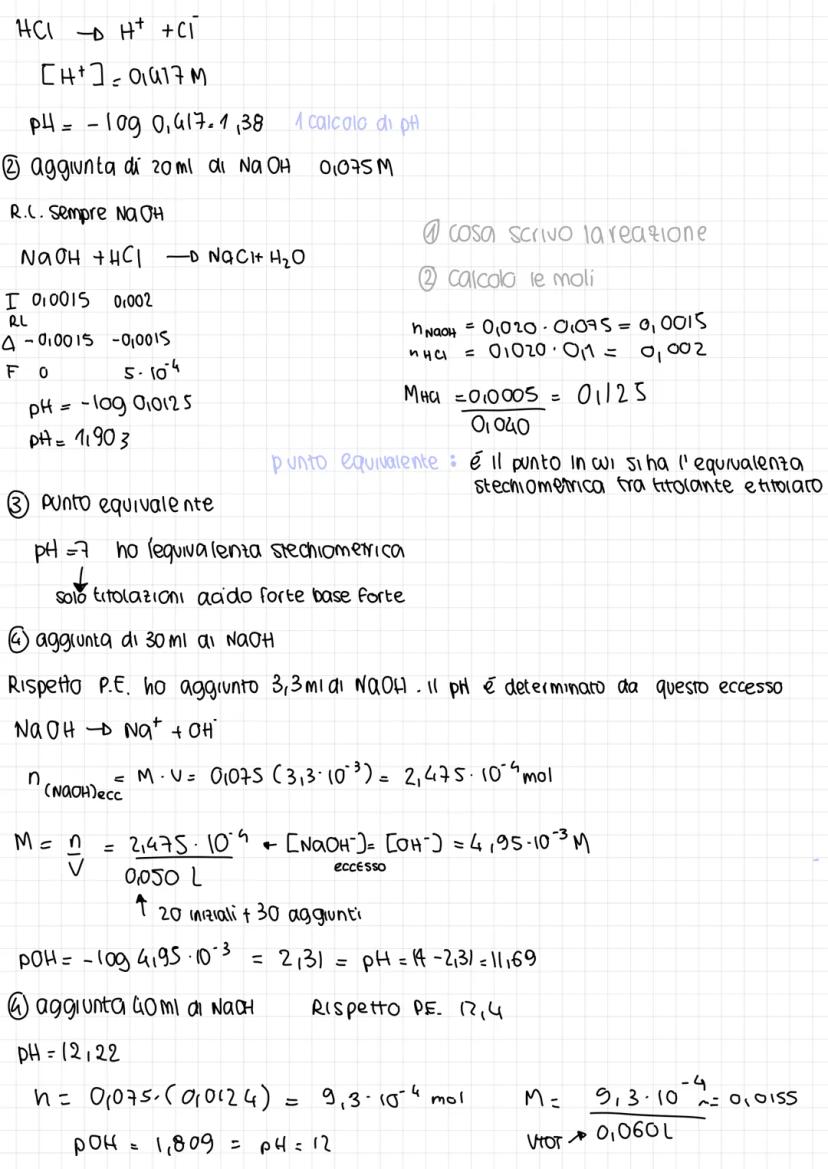 HCl → H⁺ + Cl⁻
[H⁺] = 0,417 M
pH = - log 0,417 = 1,38 1 calcolo di pH
② aggiunta di 20 ml di NaOH 0,075 M
R.L. sempre NaOH
① cosa scrivo la reazione
NaOH + HCl → NaCl + H₂O
② calcolo le moli
I 0,0015 0,002
RL
Δ -0,0015 -0,0015
F 0 5·10⁻⁴
n NaOH = 0,020 · 0,075 = 0,0015
n HCl = 0,020 · 0,1 = 0,002
pH = -log 0,0125
pH = 1,903
M HCl = 0,0005 / 0,040 = 0,125
punto equivalente : é il punto in cui si ha l'equivalenza
stechiometrica tra titolante e titolato
③ punto equivalente
pH = 7 ho l'equivalenza stechiometrica
↓
solo titolazioni acido forte base forte
④ aggiunta di 30 ml di NaOH
Rispetto P.E. ho aggiunto 3,3 ml di NaOH. Il pH é determinato da questo eccesso
NaOH → Na⁺ + OH⁻
n (NaOH)ecc = M · V = 0,075 (3,3·10⁻³) = 2,475·10⁻⁴ mol
M = n / V = 2,475·10⁻⁴ / 0,050 L ← [NaOH⁻] = [OH⁻] = 4,95·10⁻³ M
eccesso
↑ 20 iniziali + 30 aggiunti
pOH = - log 4,95·10⁻³ = 2,31 = pH = 14 - 2,31 = 11,69
④ aggiunta 40 ml di NaOH Rispetto PE. 12,4
pH = 12,22
n = 0,075·(0,0124) = 9,3·10⁻⁴ mol M = 9,3·10⁻⁴ / 0,060 L ≈ 0,0155
VTOT ↗
pOH = 1,809 = pH = 12